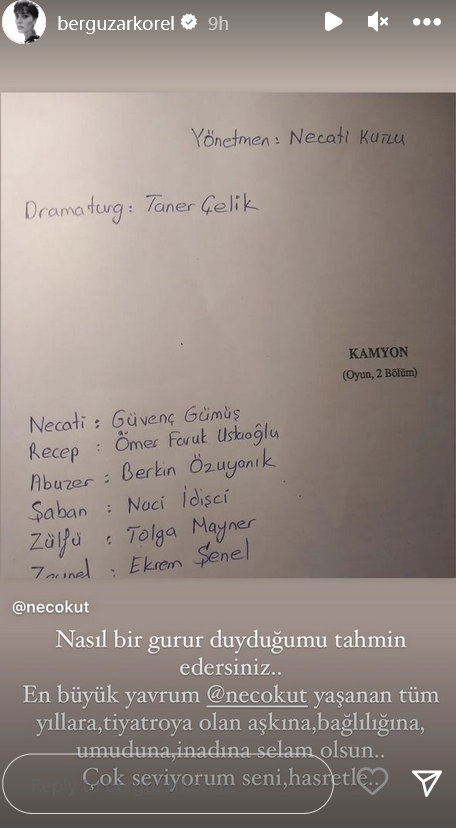 berguzarkorel 9h
Yönetmen : Necati Kutlu
Dramaturg : Taner Çelik
KAMYON
(Oyun, 2 Bölüm)
Necati : Güvenç Gümüş
Recep : Ömer Faruk Ustaoğlu
Abuzer : Berkin Özuyanık
Şaban : Naci İdişci
Zülfü : Tolga Mayner
Zeynel : Ekrem Şenel
@necokut
Nasıl bir gurur duyduğumu tahmin
edersiniz..
En büyük yavrum @necokut yaşanan tüm
yıllara,tiyatroya olan aşkına,bağlılığına,
umuduna,inadına selam olsun..
Çok seviyorum seni,hasretle..
Reply to berguzarkorel...